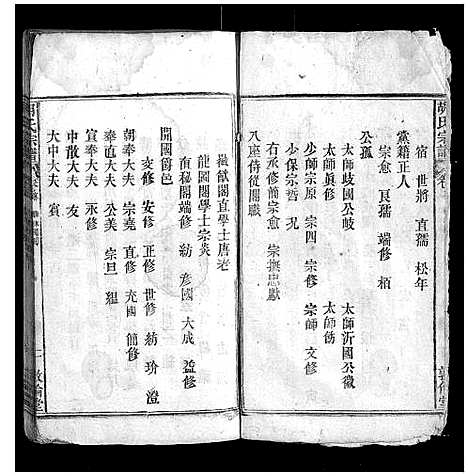 胡氏宗譜
宿 世將 直孺 松年
黨籍正人
宗愈 良 端修 栢
公孤
太師歧國公岐 太師沂國公徽
太師眞修 太師
少師宗原 宗四 宗修 宗師 文修
少保宗哲 况
右丞修簡宗愈 宗 忠獻
八座侍從閣職
徽猷閣直學士唐老
龍圖閣學士宗炎
右秘閣端修 紡 彥國 大成 益修
開國爵邑
交修 安修 正修 世修 紡 玠 澄
朝奉大夫 宗堯 直修 充國 簡修
奉直大夫 公美 宗旦
寅奉大夫 承修
中散大夫 友
太中大夫 賓
敦倫堂